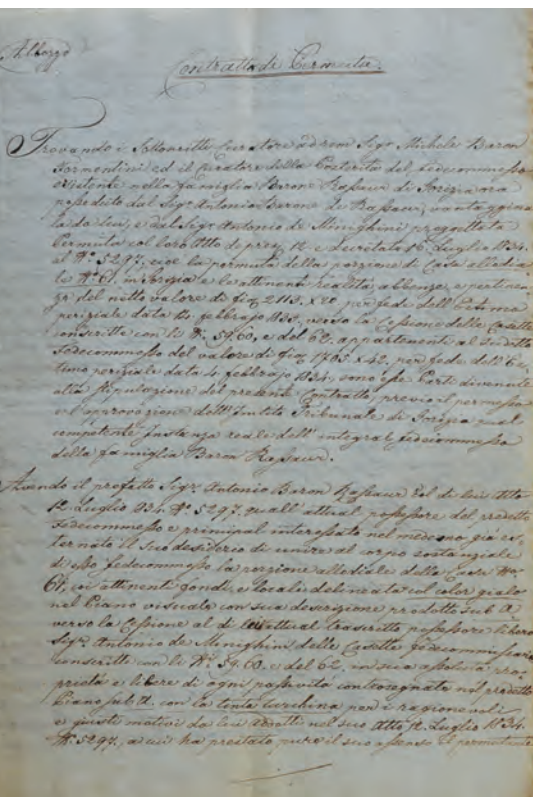 Contratto di Permuta.
Trovando i Sottoscritti Curatore ad rem Sigr. Michele Baron
Formentini ed il Curatore della Posterità del fedecommesso
esistente nella famiglia Barone Rassaur di Gorizia ora
posseduto dal Sigr. Antonio Barone de Rassaur, vantaggiosa
la da lui, e dal Sigr. Antonio de Minighini progettata
Permuta col loro Atto de pres. 12 e decretato 16 Luglio 1834
al No. 5297, cioè la permuta della porzione di Casa allodia
le No. 61. in Gorizia e le attinenti realità, adjenze, e pertinen
ze del netto valore di fior. 2113. x 20. per fede dell'Estimo
periziale data 14 febbrajo 1834, verso la Cessione delle Casette
conscritte con li No. 59. 60, e del 62, appartenenti al sudetto
Fedecommesso del valore di fior. 1765 x 42, per fede dell'Es
timo periziale data 4 febbrajo 1834, sono esse Parti divenute
alla stipulazione del presente Contratto, previo il permesso
e l'approvazione dell'Inclito Tribunale di Gorizia qual
competente Instanza reale dell'integral fedecommesso
della famiglia Baron Rassaur.
Avendo il prefatto Sigr. Antonio Baron Rassaur col di lui Atto
12 Luglio 834 No. 5297 quall'attual possessore del predetto
Fedecommesso e principal interessato nel medesimo già es
ternato il suo desiderio di unire al corpo sostanziale
di esso fedecommesso la porzione allodiale della Casa No.
61, coi attinenti fondi, e locali delineata col color gialo
nel Piano visuale con sua descrizione prodotto sub A
verso la Cessione al di lei attual trascritto possessore libero
Sigr. Antonio de Minighini delle Casette fedecommissarie
conscritte con li No. 59. 60. e del 62. in sua assoluta pro
prietà e libere di ogni passività contrasegnate nel predetto
Piano sub A. con la tinta turchina per i ragionevoli
e giusti motivi da lui addotti nel suo Atto 12 Luglio 1834
No. 5297, a cui ha prestato pure il suo assenso il permutante